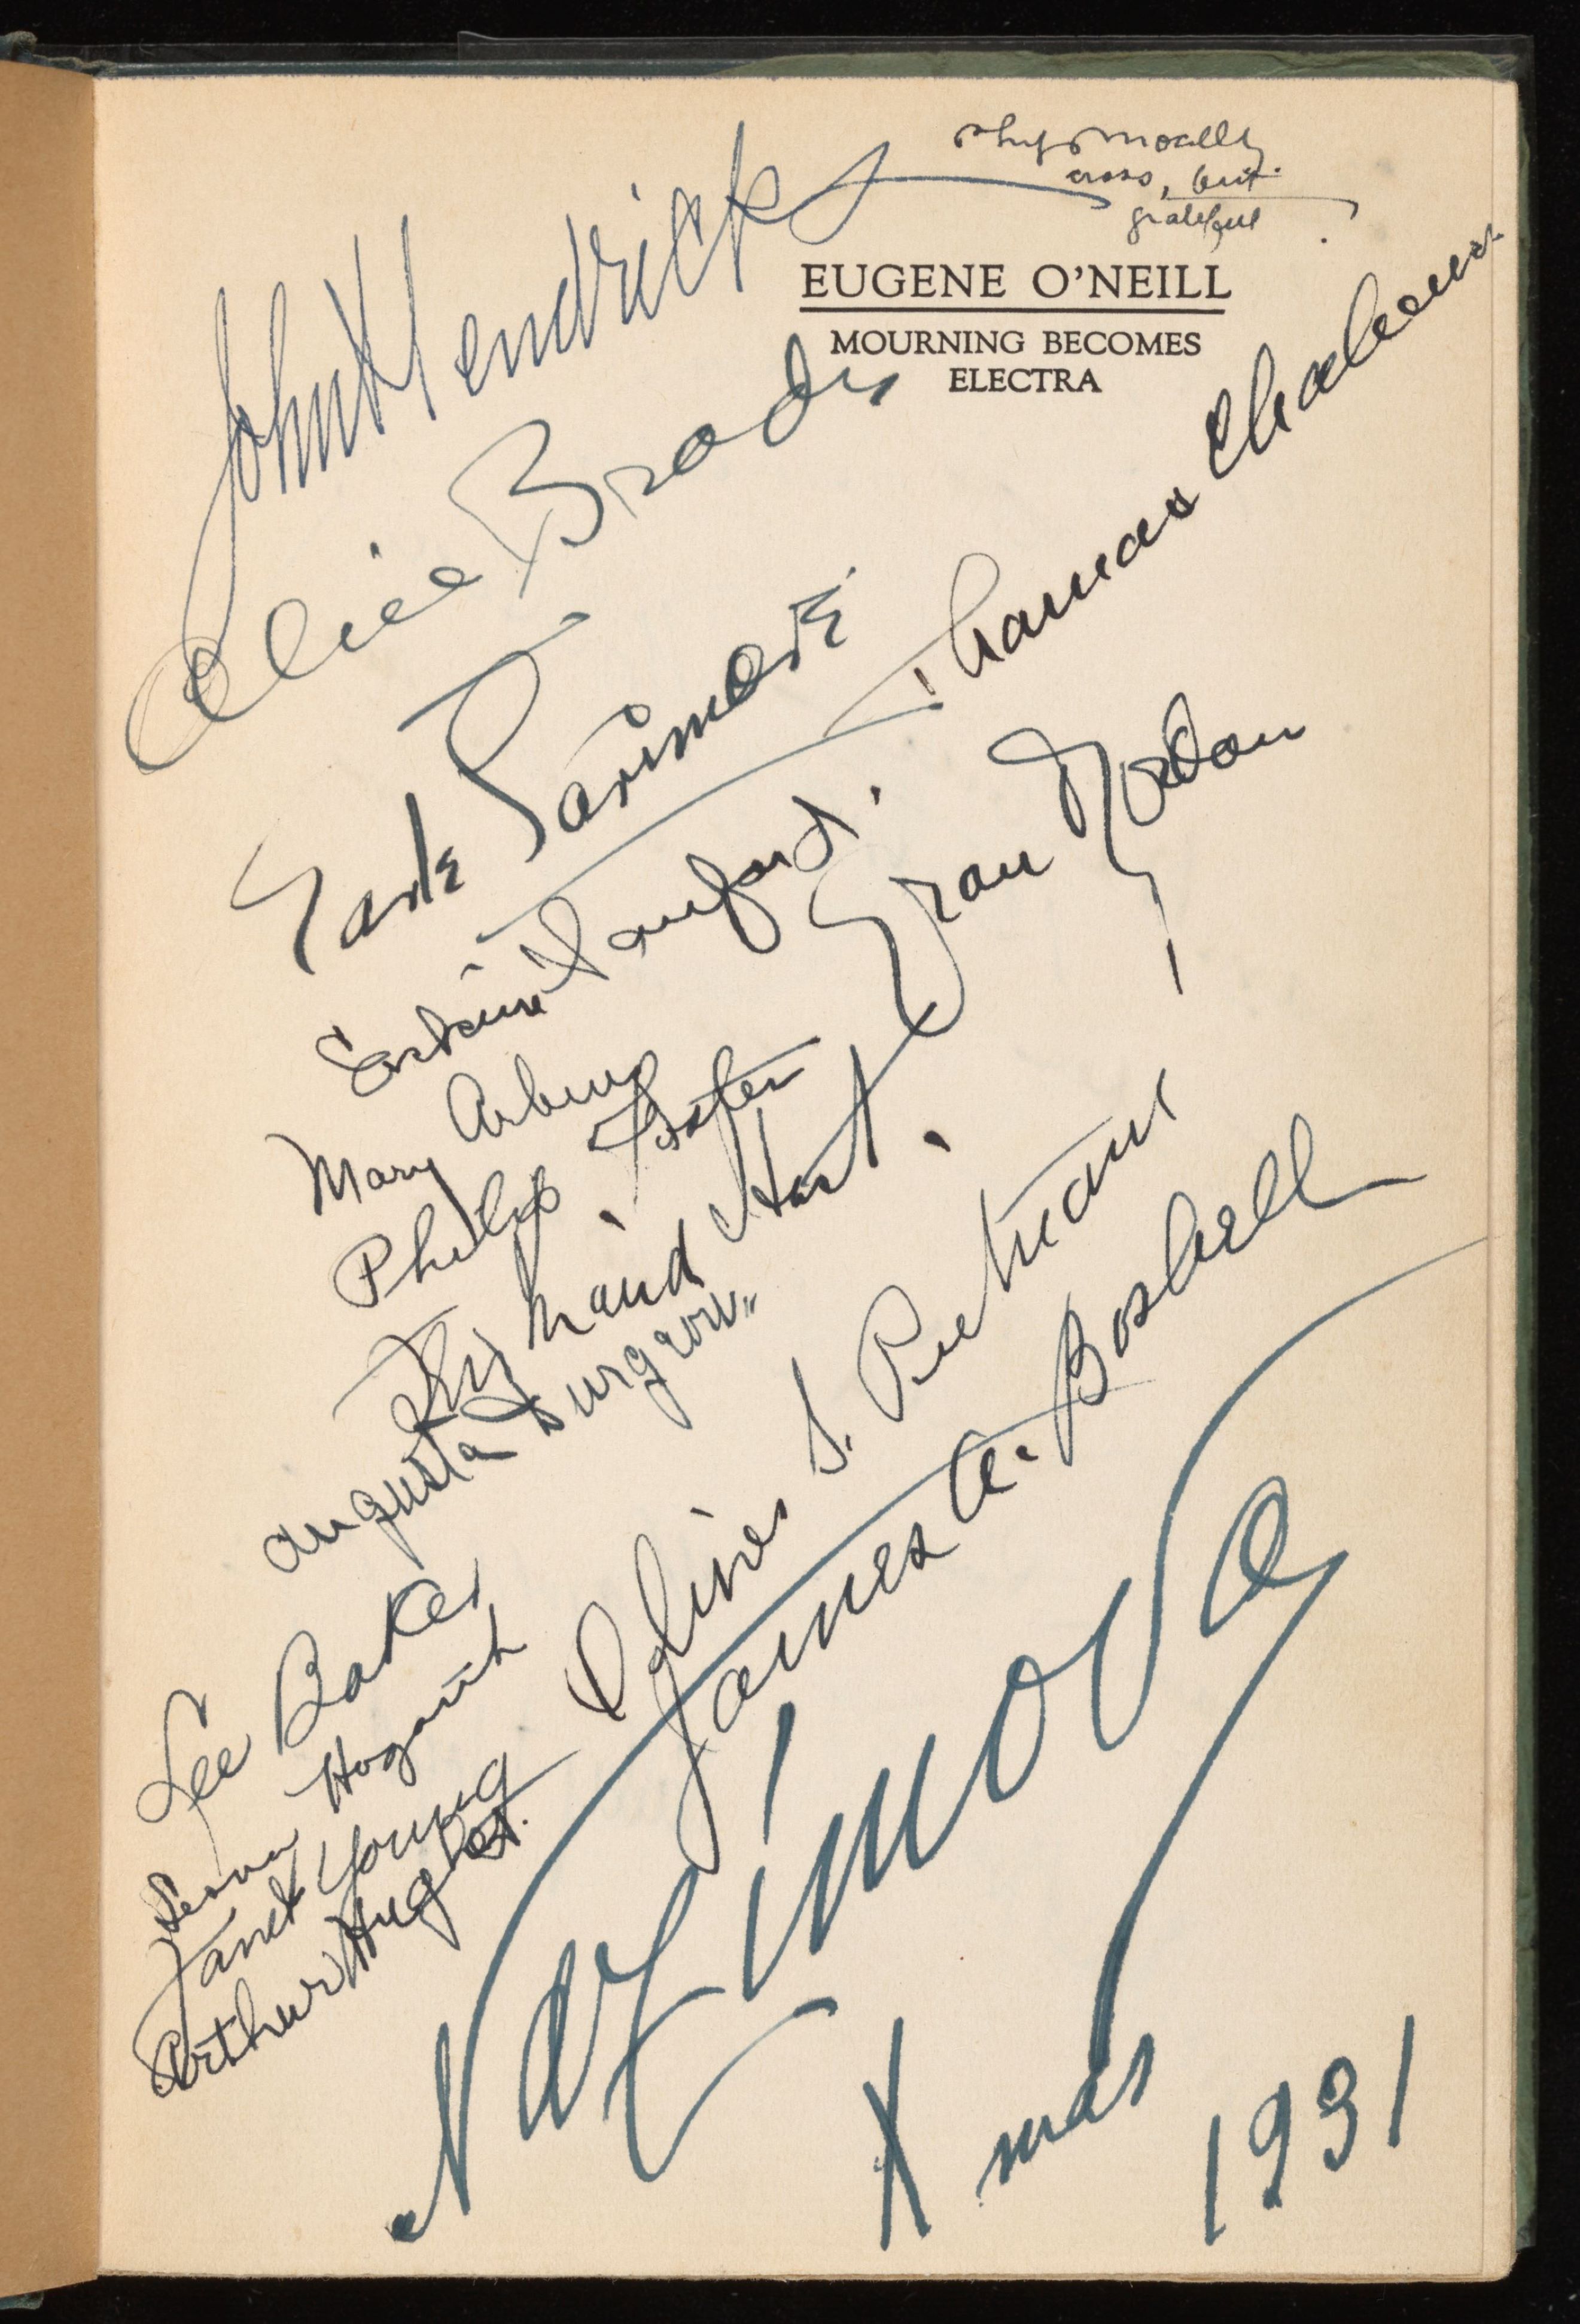 John Hendricks
physically
cross, but
grateful
EUGENE O'NEILL
MOURNING BECOMES
ELECTRA
Alice Brady
Thomas Chalmers
Earle Larimore
Erskine Sanford.
Grant Gordon
Mary Arbenz
Philip Foster
Bernice Elliott
Augusta Durgeon
Oliver S. Putnam
James A. Boshell
Lee Baker
Leona Hogarth
Janet Young
Arthur Hughes.
Nazimova
Xmas 1931